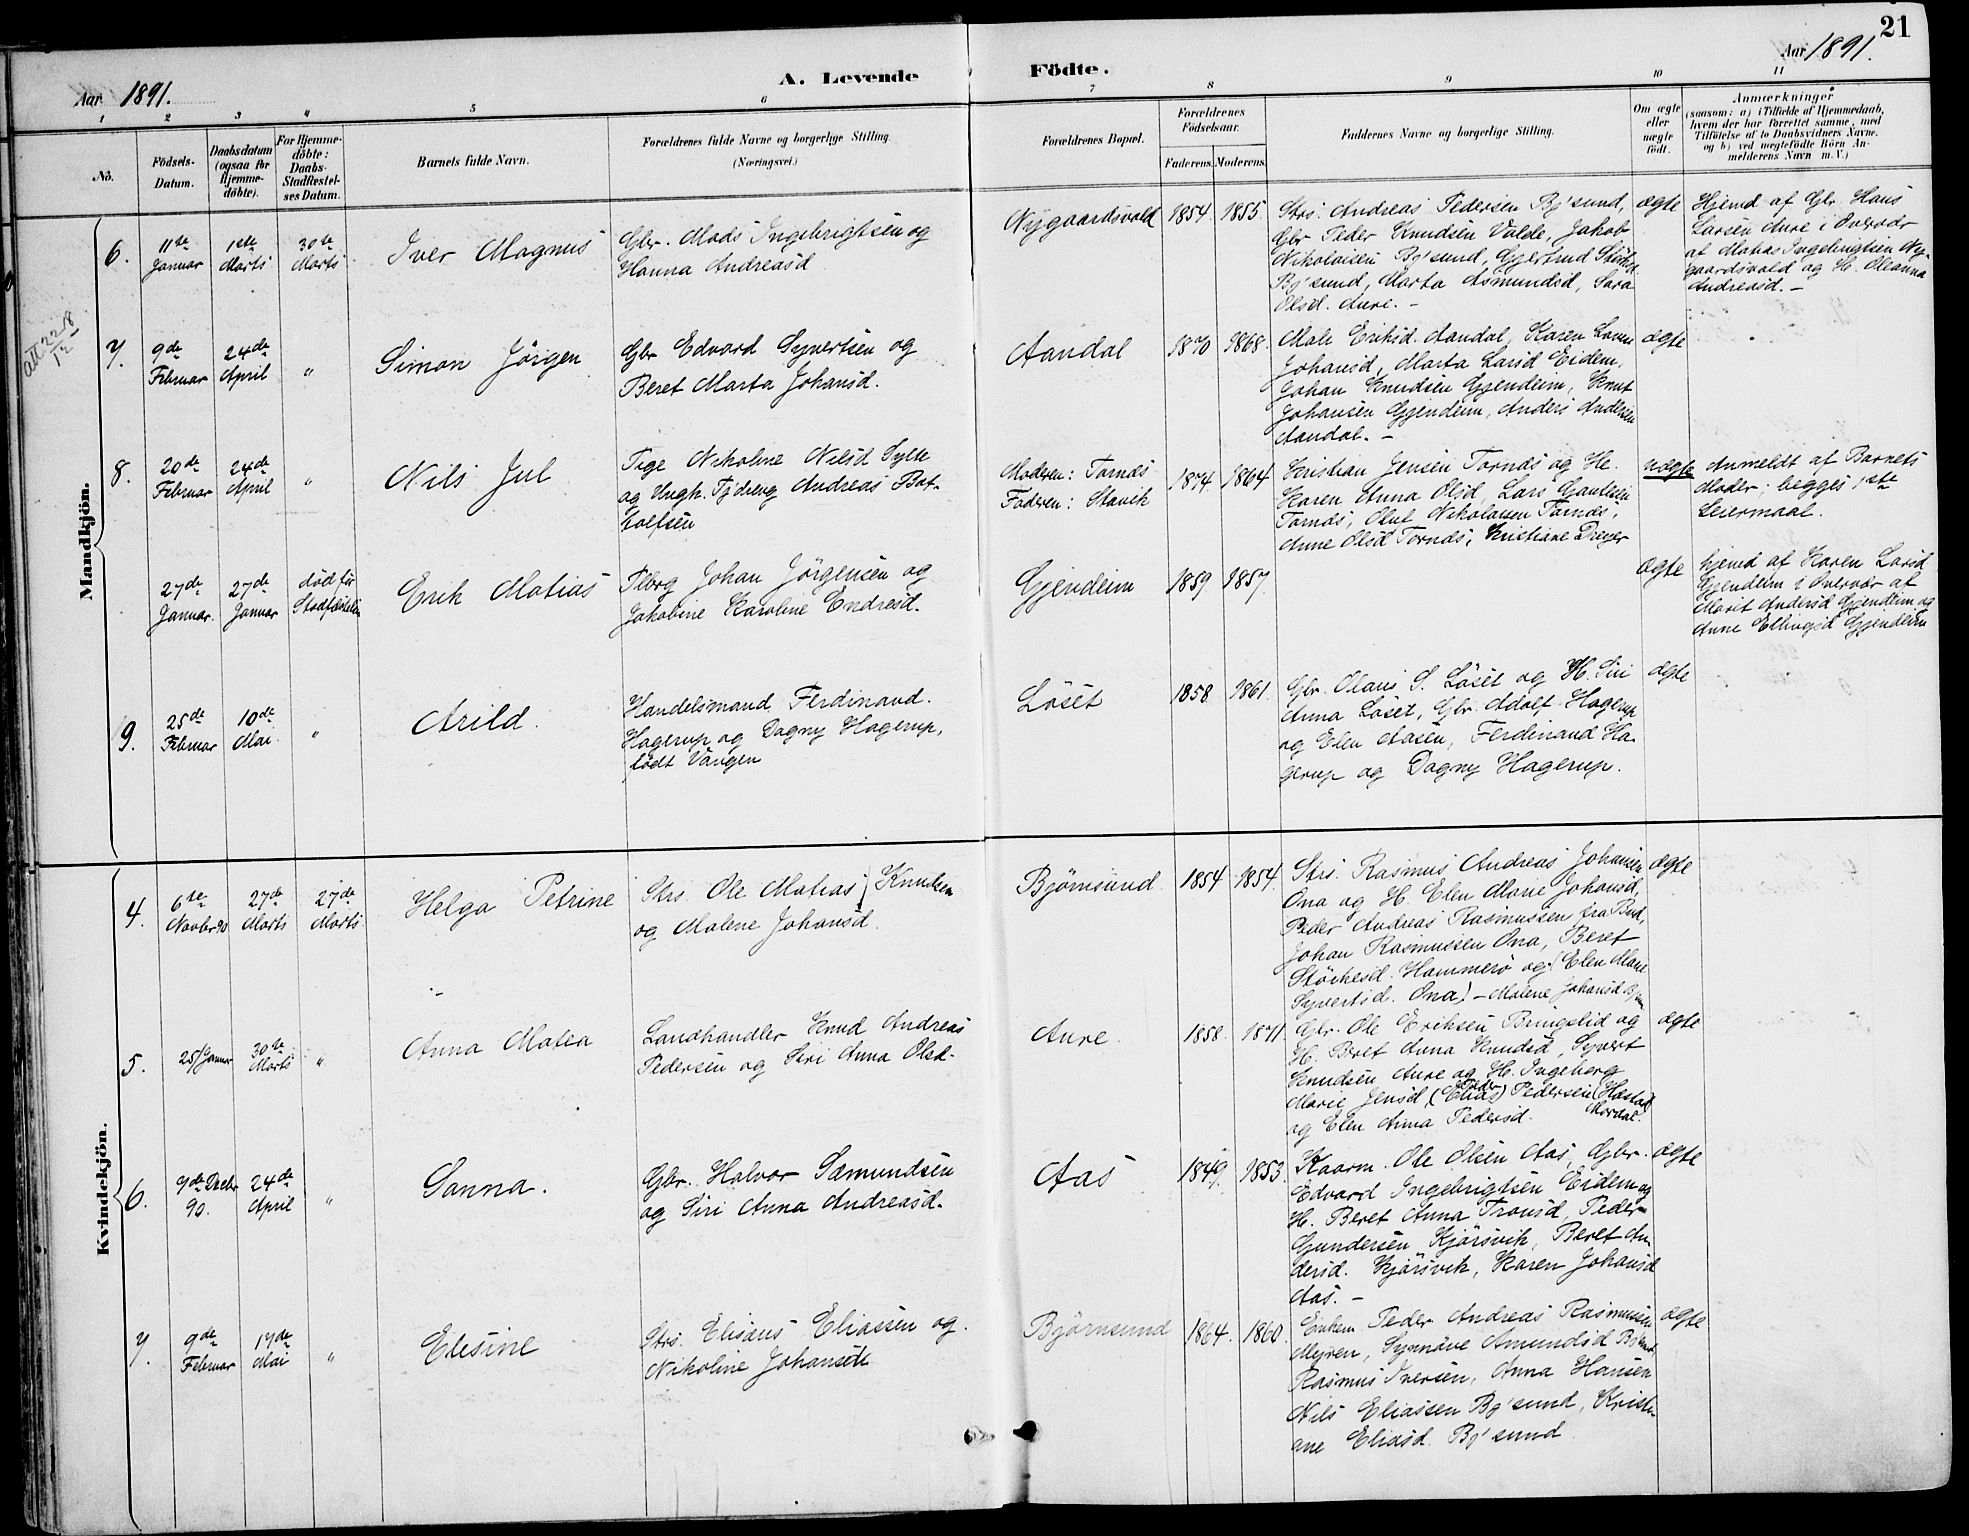 21
Aar 1891.
A. Levende
Födte.
Aar 1891.
1
2
3
4
5
6
7
8
9
10
11
No.
Födsels-
Datum.
Daabsdatum
(ogsaa for
Hjemme-
döbte).
For Hjemme-
döbte:
Daabs-
Stadfæstel-
ses Datum.
Barnets fulde Navn.
Forældrenes fulde Navne og borgerlige Stilling.
(Næringsvei.)
Forældrenes Bopæl.
Forældrenes
Födselsaar.
Faderens.
Moderens.
Faddernes Navne og borgerlige Stilling.
Om ægte
eller
uægte
født.
Anmærkninger
(saasom: a) i Tilfælde af Hjemmedaab,
hvem der har forrettet samme, med
Tilföielse af to Daabsvidners Navne.
og b) ved uægtefödte Börn An-
melderens Navn m. V.)
Mandkjön.
6.
11te
Januar
1ste
Marts
30te
Marts
Iver Magnus
Gbr. Mads Ingebrigtsen og
Hanna Andreasd
Nygaardsvold
1854.
1855.
Strs. Andreas Pedersen Bj'sund,
Gbr Peder Knudsen Valde, Jakob
Nikolaisen Bj'sund, Gjertrud
Bj'sund, Marta Asmundsd, Sara
Olsd. Aure. -
ægte
Hjemd af Gbr. Hans
Larsen Aure i Overvær
af Matias Ingebrigtsen Ny-
gaardsvold og H. Oleanna
Andreasd. -
7.
9de
Februar
24de
April
"
Simon Jörgen
Gbr Edvard Syvertsen og
Beret Marta Johansd.
Aandal
1870
1868.
Mali Eriksd. Aandal, Karen
Johansd, Marta Larsd Eidem,
Johan Knudsen Gjendem, Knut
Johansen Gjendem, Anders Andersen
Aandal. -
ægte
8.
20de
Februar
24de
April
"
Nils Jul
Pige Nikoline Nilsd Sylte
og Ungk. Tj.dreng Andreas Bot-
tolfsen
Moderen: Tornæs
Faderen: Stavik
1874.
1864
Kristian Jensen Tornæs og He.
Karen Anna Olsd, Lars Gautesen
Tornæs, Oluf Nikolaisen Tornæs,
Anne Olsd Tornæs, Kristiane Dreyer
uægte
Anmeldt af Barnets
Moder; begges 1ste
Leiermaal.
27de
Januar.
27de
Januar
död før
Stadfæstelsen
Erik Matias
Plbrg Johan Jörgensen og
Jakobine Karoline Endresd.
Gjendem
1859
1857.
ægte
hjemd af Karen Larsd
Gjendem i Overvær af
Marit Andersd Gjendem og
Anne Ellingsd Gjendem
9.
25de
Februar
10de
Mai
"
Arild.
Handelsmand Ferdinand.
Hagerup og Dagny Hagerup,
födt Vangen
Löset
1858
1861.
Gbr. Olaus S. Löset og H. Siri
Anna Löset, Gbr. Adolf Hagerup
og Elen Aasen, Ferdinand Ha-
gerup og Dagny Hagerup.
ægte
Kvindekjön.
4.
6te
Novbr 90
27de
Marts
27de
Marts
Helga Petrine
Strs. Ole Matias Knudsen
og Malene Johansd.
Björnsund
1854
1854.
Strs. Rasmus Andreas Johansen
Ona og H. Elen Marie Johansd,
Peder Andreas Rasmussen fra Bud,
Johan Rasmussen Ona, Beret
Störkesd. Hammerö og (Elen Marie
Syvertsd. Ona) - Malene Johansd
ægte
5.
25/Januar
30te
Marts
"
Anna Matea
Landhandler Knud Andreas
Pedersen og Siri Anna Olsd.
Aure.
1858.
1871.
Gbr. Ole Eriksen Bringslid og
H. Beret Anna Knudsd, Syvert
Knudsen Aure og H. Ingeborg
Marie Jensd, (Elias) Peder Pedersen (Hostad) Mordal.
og Elen Anna Pedersd.
ægte
6.
9de Decbr
90.
24de
April
"
Sanna.
Gbr. Halvor Sæmundsen
og Siri Anna Andreasd.
Aas
1849.
1853.
Kaarm. Ole Olsen Aas, Gbr.
Edvard Ingebrigtsen Eidem og
H. Beret Anna Tronsd, Peder
Gundersen Kjörsvik, Beret An-
dersd. Kjörsvik, Karen Johansd
Aas. -
ægte
7.
9de
Februar
17de
Mai
"
Elesine
Strs. Elisæus Eliassen og
Nikoline Johansdtr
Björnsund
1864.
1860.
Enkem Peder Andreas Rasmussen
Mejren, Synnöve Amundsd Bj'sund,
Rasmus Iversen, Anna Hansen
Nils Eliassen Bj'sund, Kristi-
ane Eliasd. Bj'sund
ægte